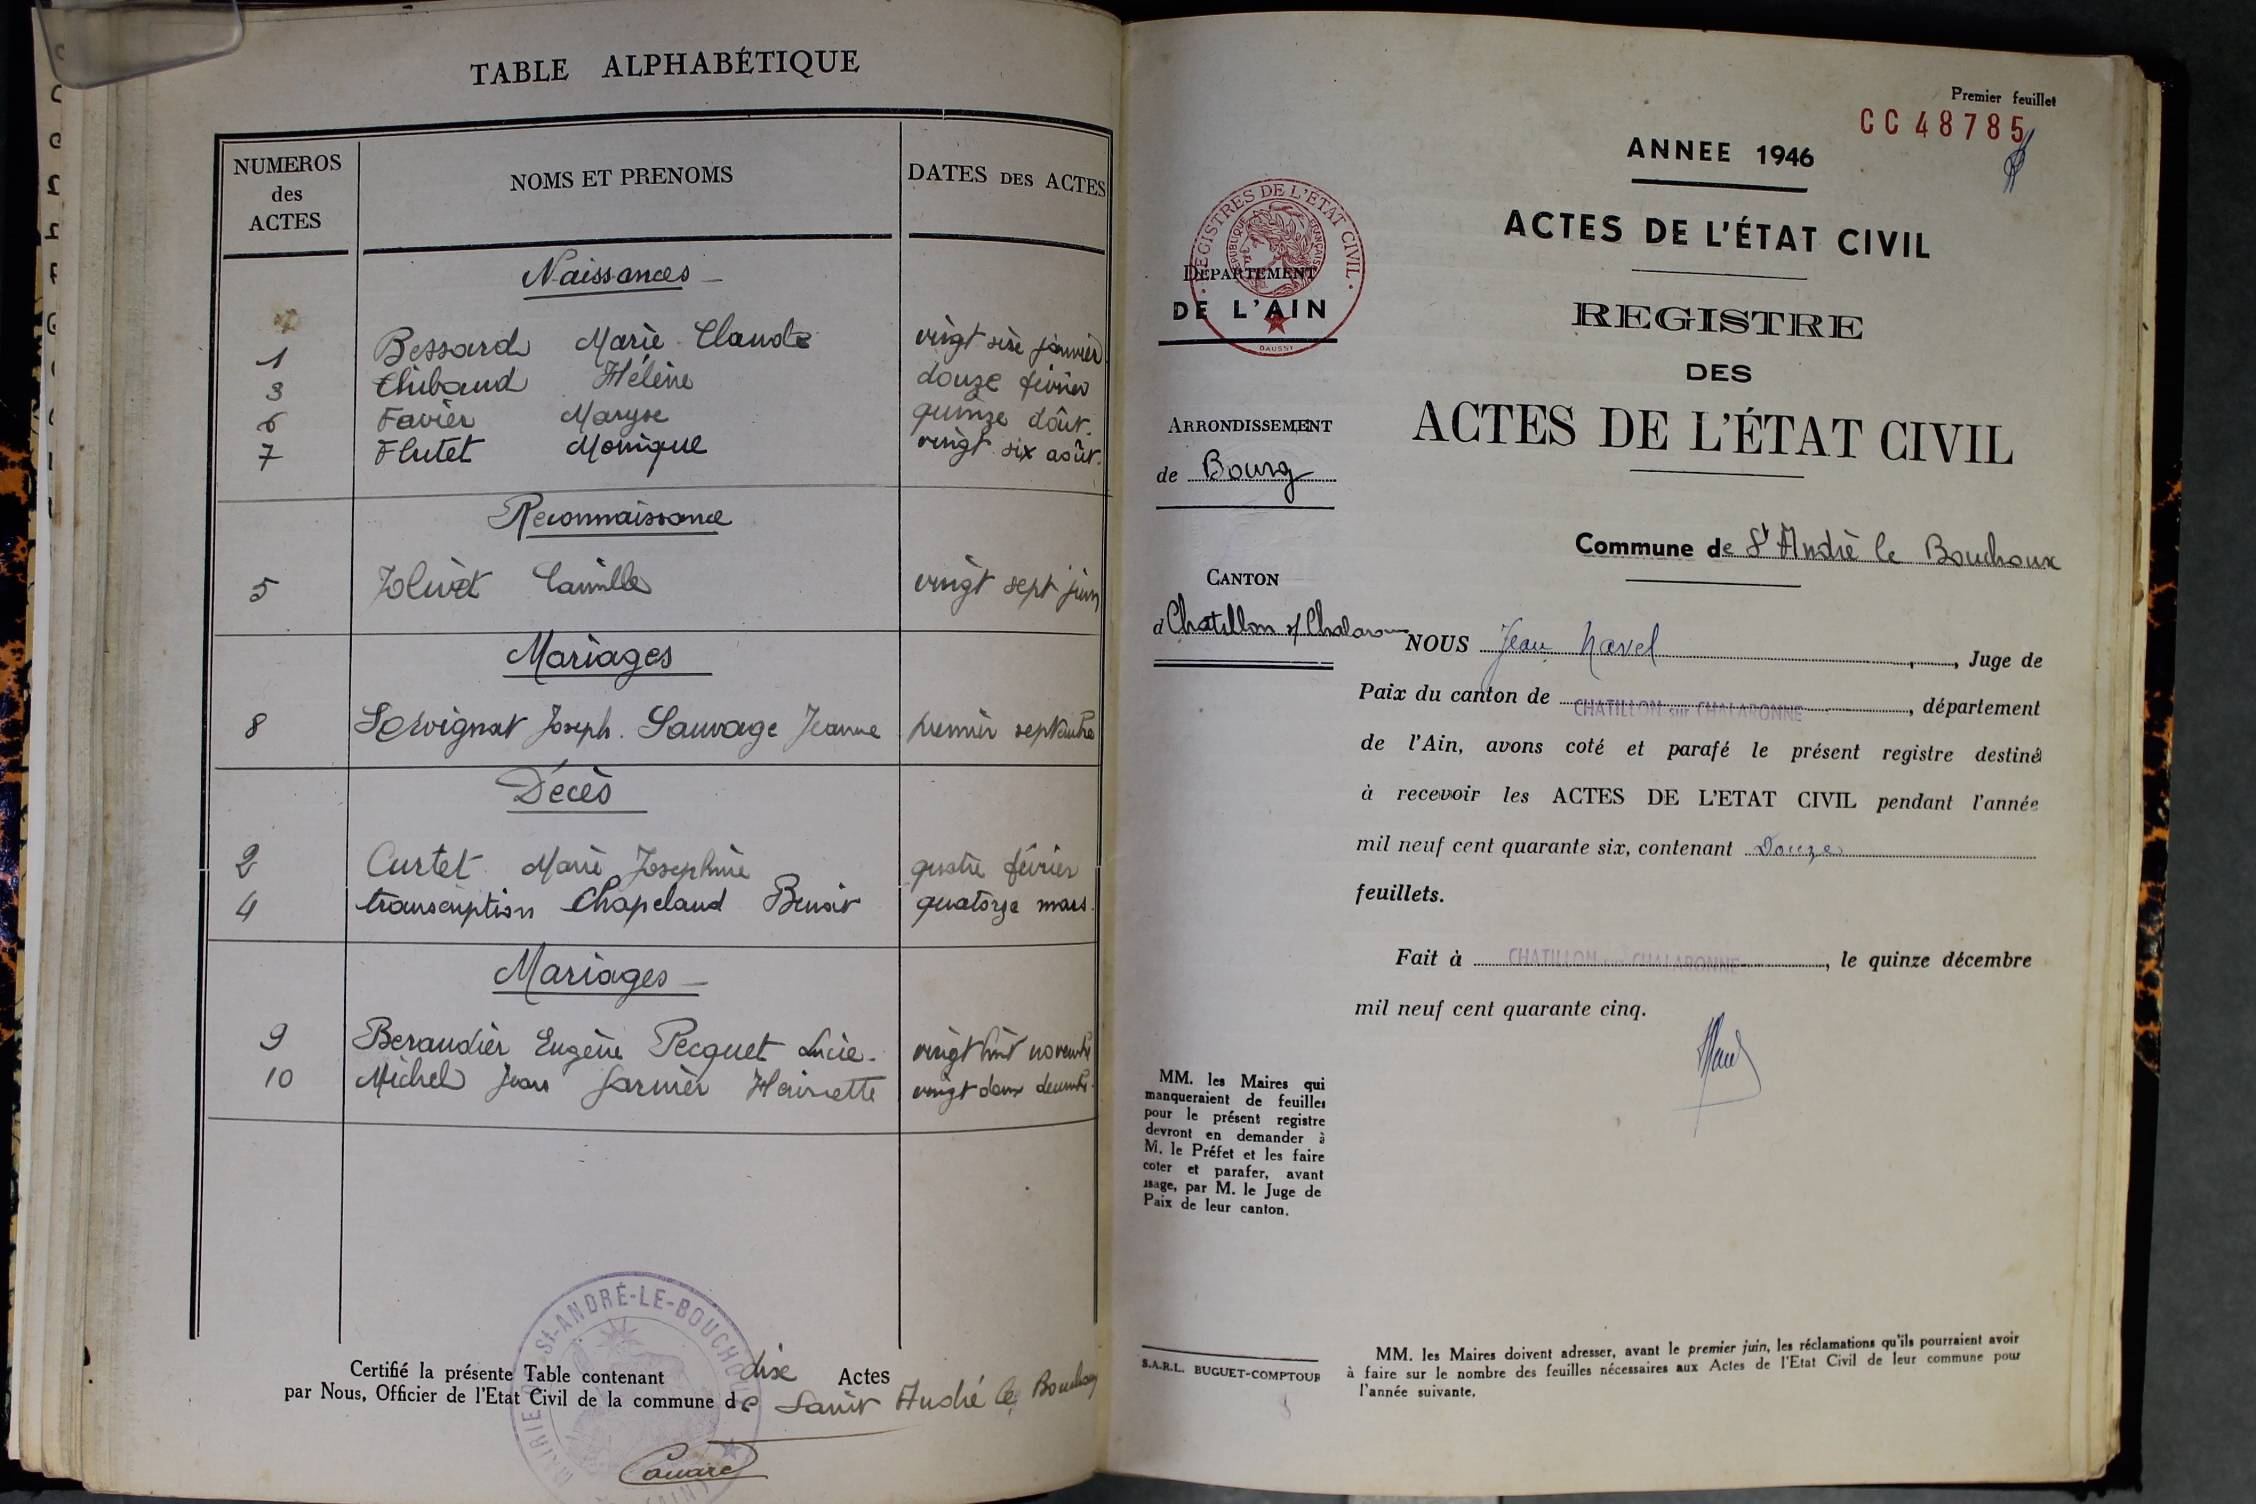 TABLE ALPHABÉTIQUE
NUMEROS des ACTES NOMS ET PRENOMS DATES DES ACTES
Naissances
1 Bessard Marie Claude vingt sixe janvier
3 Thibaud Hélène douze février
6 Favier Maryse quinze août.
7 Flutet Monique vingt six août.
Reconnaissance
5 Jolivet Camille vingt sept juin
Mariages
8 Servignat Joseph. Sauvage Jeanne premier septembre
Décès
2 Curtet Marie Josephine quatre février
4 transcription Chapeland Benoit quatorze mars.
Mariages
9 Beraudier Eugène Pecquet Lucie. vingt huit novembre
10 Michel Jean Garnier Henriette vingt deux decembre
Certifié la présente Table contenant dixe Actes
par Nous, Officier de l'Etat Civil de la commune de Saint André le Bouchoux
MAIRIE ST-ANDRÉ-LE-BOUCHOUX (AIN)
Premier feuillet
CC 48785
ANNEE 1946
ACTES DE L'ÉTAT CIVIL
REGISTRE
DES
ACTES DE L'ÉTAT CIVIL
REGISTRES DE L'ÉTAT CIVIL
RÉPUBLIQUE FRANÇAISE
DAUSSY
DÉPARTEMENT
DE L'AIN
ARRONDISSEMENT
de Bourg
CANTON
d Chatillon s/ Chalaronne
Commune de St André le Bouchoux
NOUS Jean Navel, Juge de
Paix du canton de CHATILLON sur CHALARONNE, département
de l'Ain, avons coté et parafé le présent registre destiné
à recevoir les ACTES DE L'ETAT CIVIL pendant l'année
mil neuf cent quarante six, contenant Douze
feuillets.
Fait à CHATILLON sur CHALARONNE, le quinze décembre
mil neuf cent quarante cinq.
MM. les Maires qui
manqueraient de feuilles
pour le présent registre
devront en demander à
M. le Préfet et les faire
coter et parafer, avant
usage, par M. le Juge de
Paix de leur canton.
S.A.R.L. BUGUET-COMPTOUR
MM. les Maires doivent adresser, avant le premier juin, les réclamations qu'ils pourraient avoir
à faire sur le nombre des feuilles nécessaires aux Actes de l'Etat Civil de leur commune pour
l'année suivante.